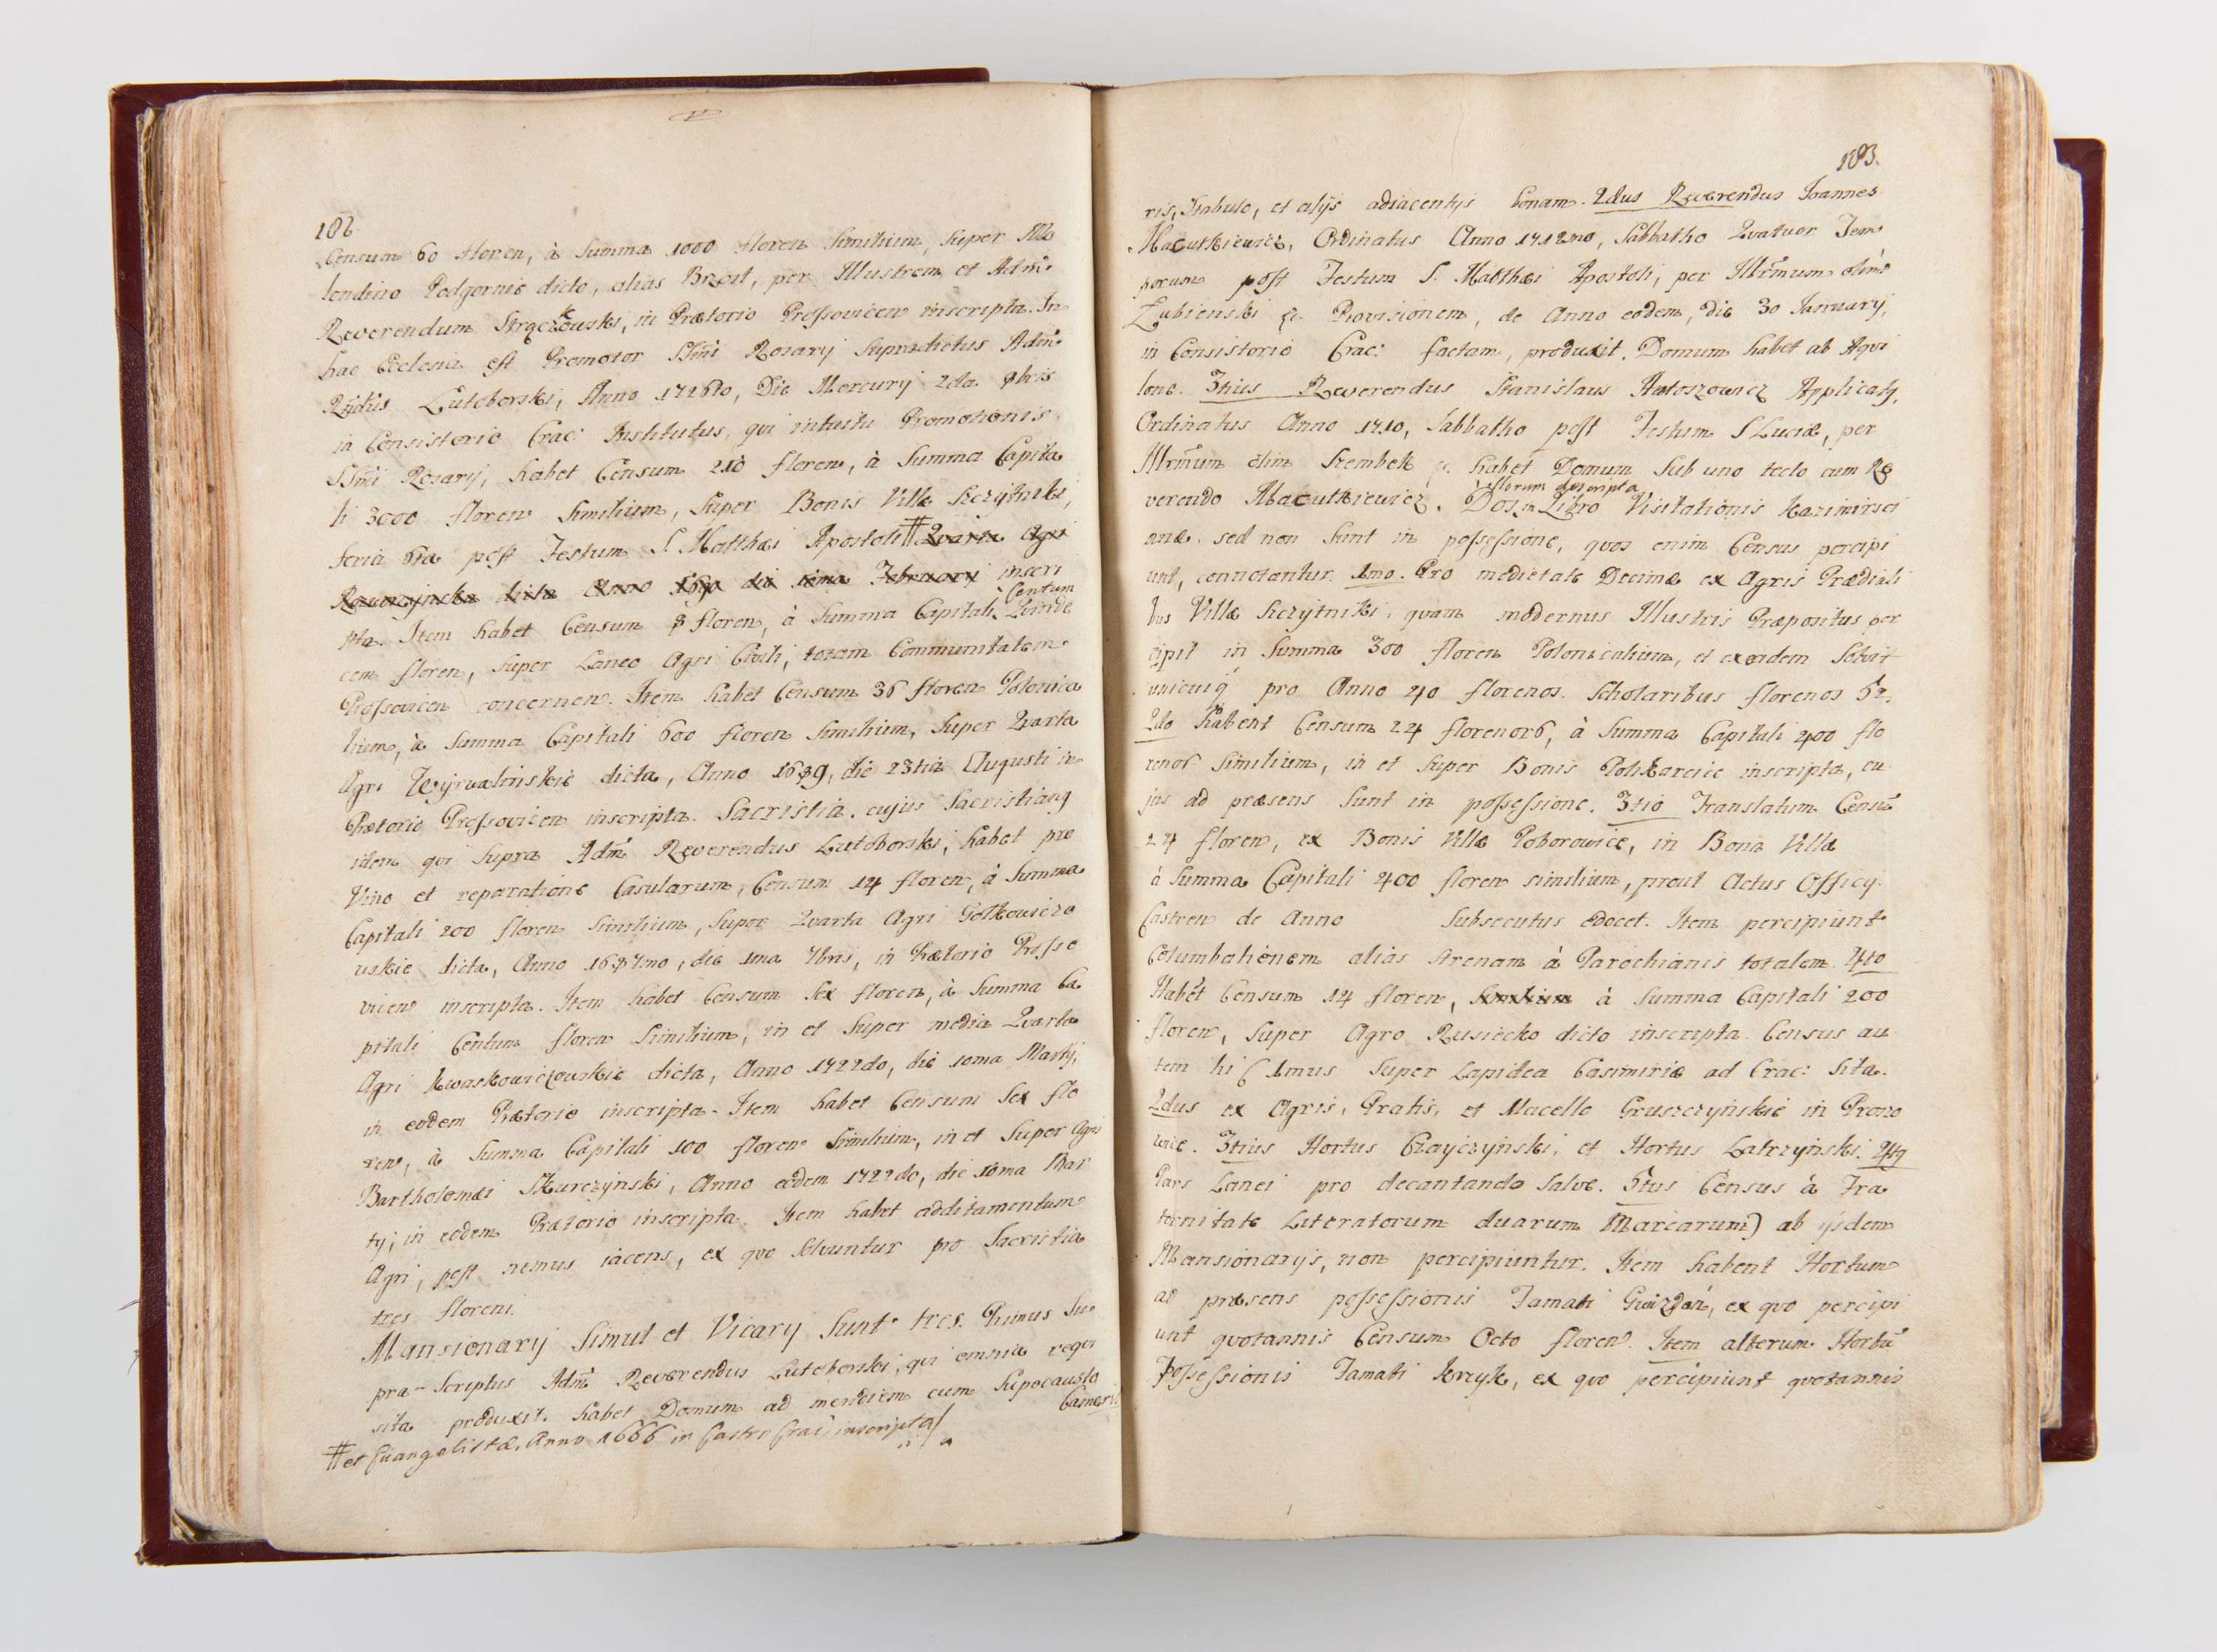 182.
Censum 60 floren, à Summa 1000 floren Similium, Super Mo
lendino Podgornie dicto, alias Brzest, per Illustrem et Adm̃
Reverendum Strączkowski, in Prætorio Prossovicen inscripta. In
hac Ecclesia est Promotor SSm̃i Rosarij Supradictus Adm̃
Rñdus Lutoborski, Anno 1726to, Die Mercurij 2da 8bris
in Consistorio Crac: Institutus, qui intuitu Promotionis
SSm̃i Rosarij, habet Censum 210 floren, à Summa Capita
li 3000 floren Similium, Super Bonis Villæ Szczytniki,
feria 6ta post Festum S. Matthæi Apostoli # Quarta Agri
dicta Anno 1690 die 10ma February inscri
pta. Item habet Censum 8 floren, à Summa Capitali Centum Quinde
cem floren, Super Laneo Agri Civili, totam Communitatem
Prossovicen concernen. Item habet Censum 36 floren Polonica
lium, à Summa Capitali 600 floren Similium, Super Quarta
Agri dicta, Anno 1689, die 23tia Augusti in
Prætorio Prossovicen inscripta. Sacristia. cujus Sacristiang
idem qui Supra Adm̃ Reverendus Lutoborski, habet pro
Vino et reparatione Casularum, Censum 14 floren, à Summa
Capitali 200 floren Similium, Super Quarta Agri Gołkowiczo
uskie dicta, Anno 1687mo, die 1ma 7bris, in Prætorio Prosso
vicen inscripta. Item habet Censum Sex floren, à Summa Ca
pitali Centum floren Similium, in et Super media Quarta
Agri Kwaskowiczouskie dicta, Anno 1722do, die 10ma Martij,
in eodem Prætorio inscripta. Item habet Censum Sex flo
ren, à Summa Capitali 100 floren Similium, in et Super Agri
Bartholomæi Skurczynski, Anno eodem 1722do, die 10ma Mar
tij, in eodem Prætorio inscripta. Item habet additamentum
Agri, post nemus iacens, ex quo Solvuntur pro Sacristia
tres floreni.
Mansionarij Simul et Vicarij Sunt tres. Primus Su
pra-Scriptus Adm̃ Reverendus Lutoborski, qui omnia requi
sita produxit. habet Domum ad meridiem cum hipocausto
Camaris
# et Evangelistæ, Anno 1666 in Castro Crac: inscripta/
183.
ris, Stabulo, et alijs adiacentijs bonam. 2dus Reverendus Joannes
Macutkiewicz, Ordinatus Anno 1712mo, Sabbatho Quatuor Tem
porum post Festum S. Matthæi Apostoli, per Illrm̃um olim
Łubienski &. Provisionem, de Anno eodem, die 30 January,
in Consistorio Crac: factam, produxit. Domum habet ab Aqui
lone. 3tius Reverendus Stanislaus Antoszowicz Applicatg,
Ordinatus Anno 1710, Sabbatho post Festum S Luciæ, per
Illrm̃um olim Szembek &. habet Domum Sub uno tecto cum Re
verendo Macutkiewicz. Dos illorum descripta in Libro Visitationis Kazimirsci
anæ. sed non Sunt in possessione, quos enim Census percipi
unt, connotantur. 1mo. Pro medietate Decimæ ex Agris Prædiali
bus Villæ Szczytniki, quam modernus Illustris Præpositus per
cipit in Summa 300 floren Polonicalium, et exeadem Solvit
unicuiq pro Anno 40 florenos. Scholaribus florenos 52.
2do Habent Censum 24 florenor6, à Summa Capitali 400 flo
renor Similium, in et Super Bonis Polikarcice inscripta, cu
jus ad præsens Sunt in possessione. 3tio Translatum Censũ
24 floren, ex Bonis Villæ Poborowice, in Bona Villa
à Summa Capitali 400 floren similium, prout Actus Officij
Castren de Anno Subsecutus edocet. Item percipiunt
Columbationem alias Strenam à Parochianis totalem. 4to
Habēt Censum 14 floren, Similium à Summa Capitali 200
floren, Super Agro Rusiecko dicto inscripta. Census au
tem hi ( 1mus Super Lapidea Casimiriæ ad Crac: Sita.
2dus ex Agris, Pratis, et Macello Gruszczyńskie in Proszo
wice. 3tius Hortus Czayczyński, et Hortus Latrzyński. 4tg
Pars Lanei pro decantando Salve. 5tus Census à Fra
ternitate Literatorum duarum Marcarum) ab ijsdem
Mansionarijs, non percipiuntur. Item habent Hortum
ad præsens possessionis Famati Gwizdoń, ex quo percipi
unt quotannis Censum Octo floren. Item alterum Hortũ
Possessionis Famati Krzyk, ex quo percipiunt quotannis